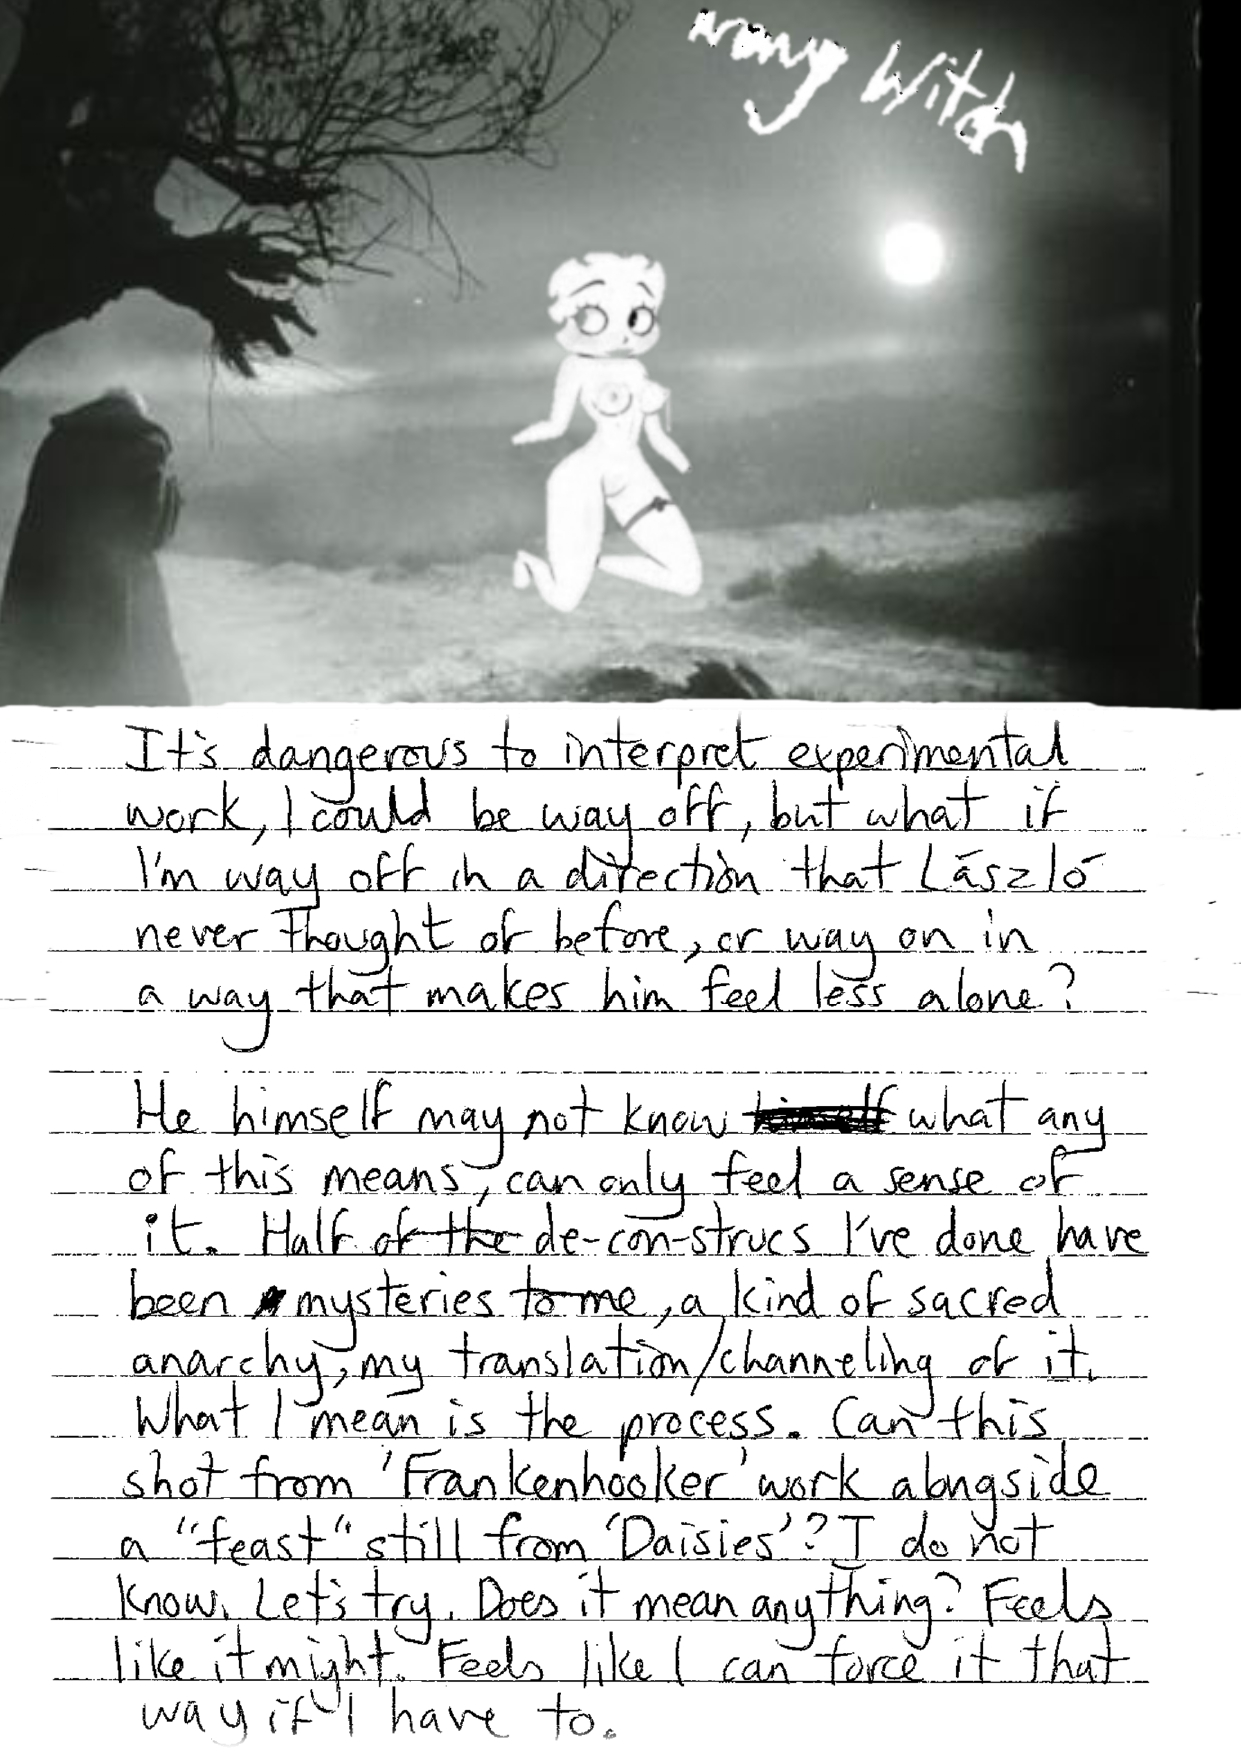 wrong Witch
It's dangerous to interpret experimental
work, I could be way off, but what if
I'm way off in a direction that László
never thought of before, or way on in
a way that makes him feel less alone?
He himself may not know himself what any
of this means, can only feel a sense of
it. Half of the de-con-strucs I've done have
been mysteries to me, a kind of sacred
anarchy, my translation/channeling of it.
What I mean is the process. Can this
shot from 'Frankenhooker' work alongside
a "feast" still from 'Daisies'? I do not
know. Let's try. Does it mean anything? Feels
like it might. Feels like I can force it that
way if I have to.